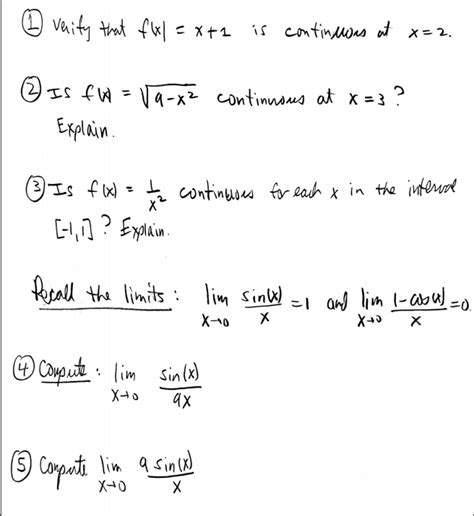 ① Verify that f(x) = x+1 is continuous at x=2.
② Is f(x) = √(9-x²) continuous at x=3?
Explain.
③ Is f(x) = 1/x² continuous for each x in the interval
[-1,1]? Explain.
Recall the limits: lim x→0 sin(x)/x = 1 and lim x→0 (1-cos(x))/x = 0
④ Compute: lim x→0 sin(x)/9x
⑤ Compute lim x→0 9 sin(x)/x